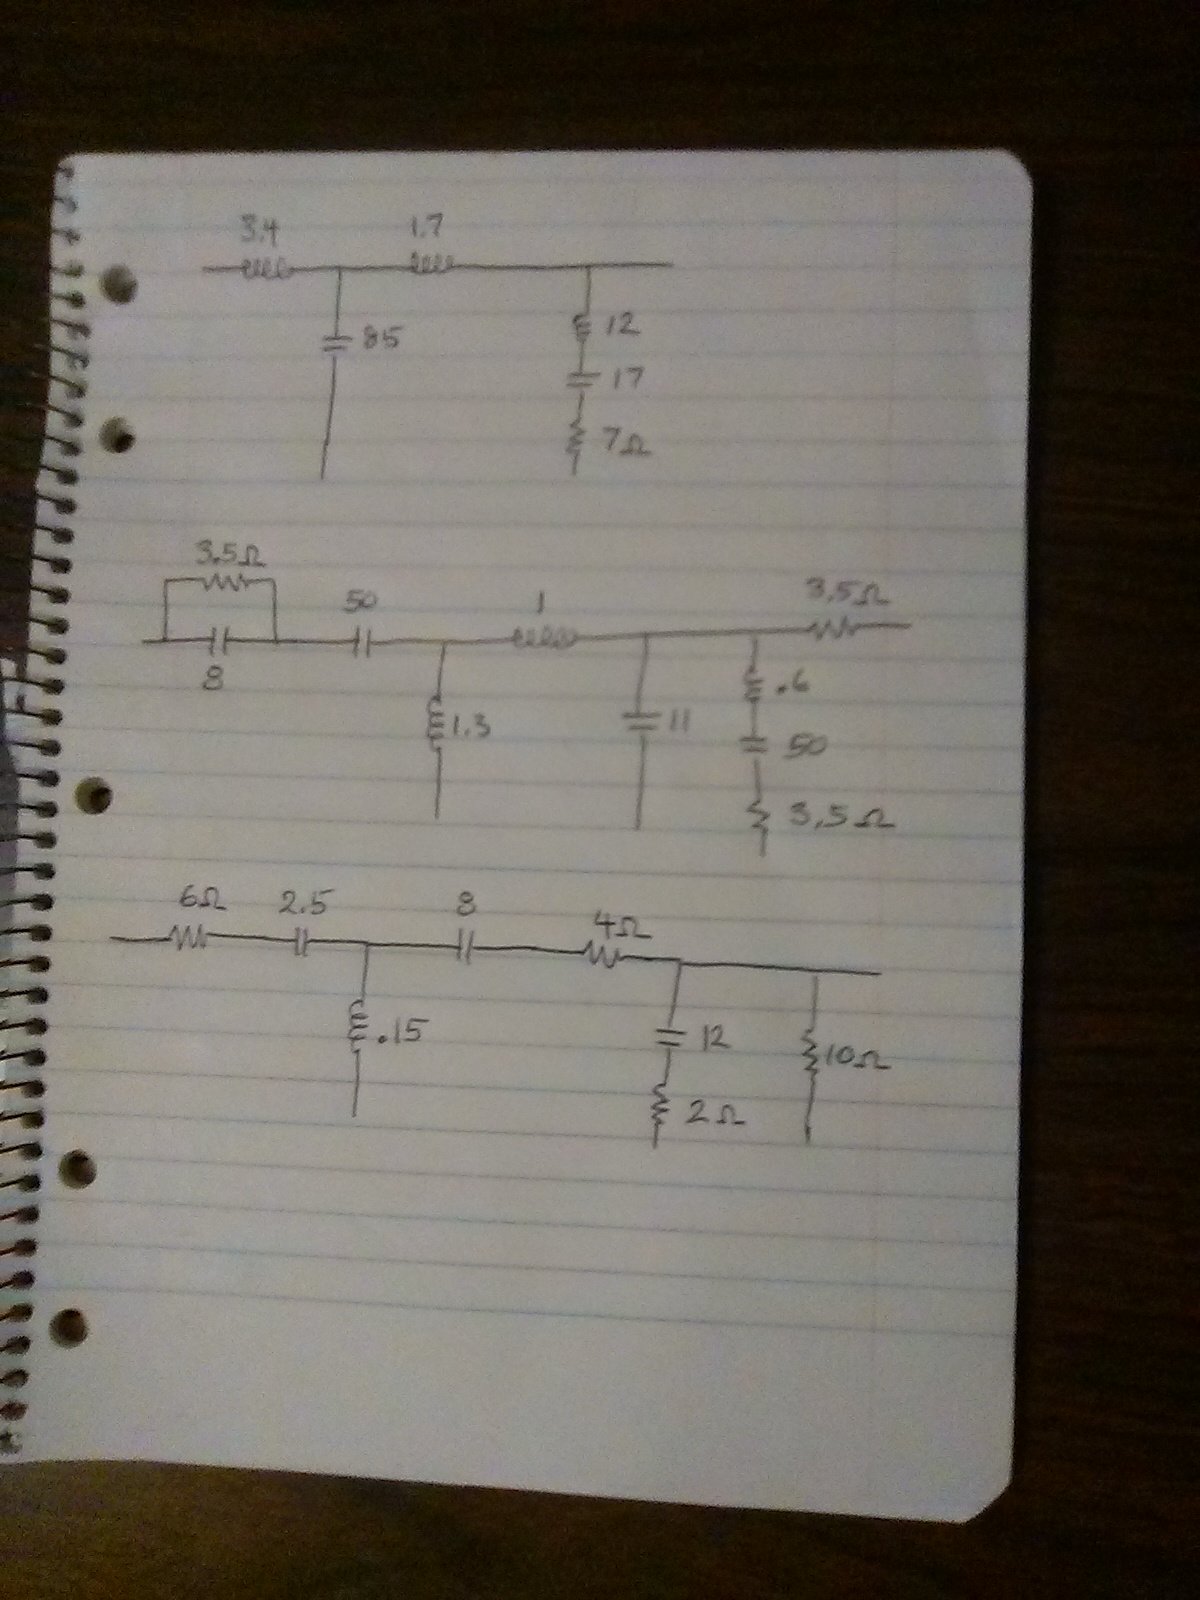 3.4 1.7
85
12
17
7Ω
3.5Ω
50 1 3.5Ω
8
1.3 11
.6
50
3.5Ω
6Ω 2.5 8 4Ω
.15 12 10Ω
2Ω